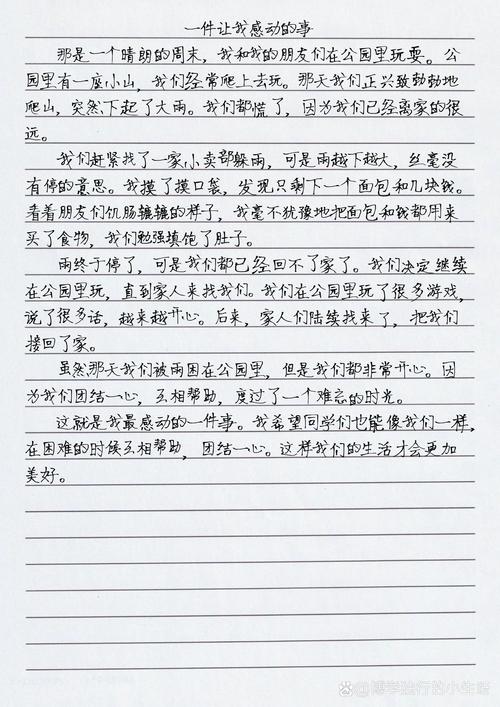 一件让我感动的事
那是一个晴朗的周末，我和我的朋友们在公园里玩耍。公
园里有一座小山，我们经常爬上去玩。那天我们正兴致勃勃地
爬山，突然下起了大雨。我们都慌了，因为我们已经离家的很
远。
我们赶紧找了一家小卖部躲雨，可是雨越下越大，丝毫没
有停的意思。我摸了摸口袋，发现只剩下一个面包和几块钱。
看着朋友们饥肠辘辘的样子，我毫不犹豫地把面包和钱都用来
买了食物，我们勉强填饱了肚子。
雨终于停了，可是我们都已经回不了家了。我们决定继续
在公园里玩，直到家人来找我们。我们在公园里玩了很多游戏，
说了很多话，越来越开心。后来，家人们陆续找来了，把我们
接回了家。
虽然那天我们被雨困在公园里，但是我们都非常开心。因
为我们团结一心，互相帮助，度过了一个难忘的时光。
这就是我最感动的一件事。我希望同学们也能像我们一样，
在困难的时候互相帮助，团结一心。这样我们的生活才会更加
美好。